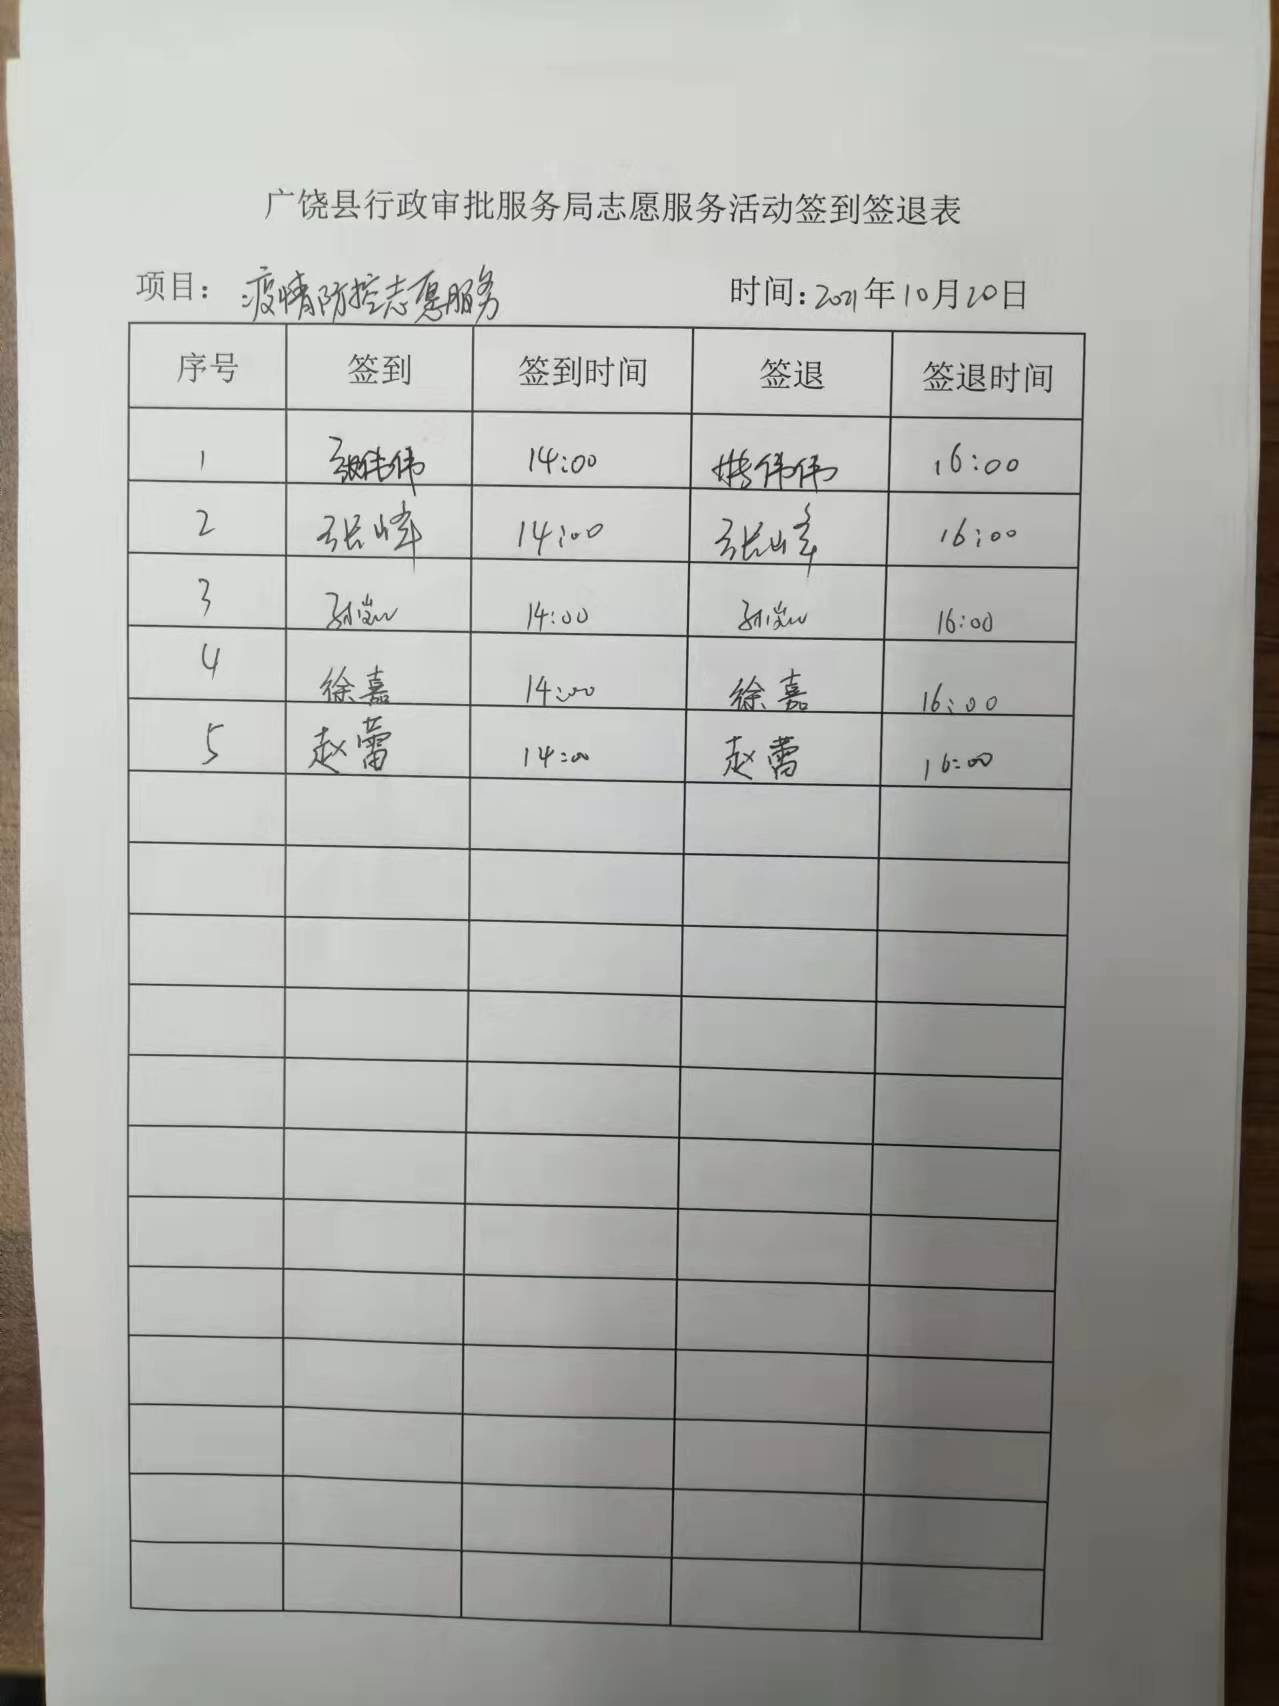 广饶县行政审批服务局志愿服务活动签到签退表
项目：疫情防控志愿服务 时间：2021年10月20日
序号 签到 签到时间 签退 签退时间
1 伟伟 14:00 伟伟 16:00
2 张峰 14:00 张峰 16:00
3 孙岚 14:00 孙岚 16:00
4 徐嘉 14:00 徐嘉 16:00
5 赵蕾 14:00 赵蕾 16:00